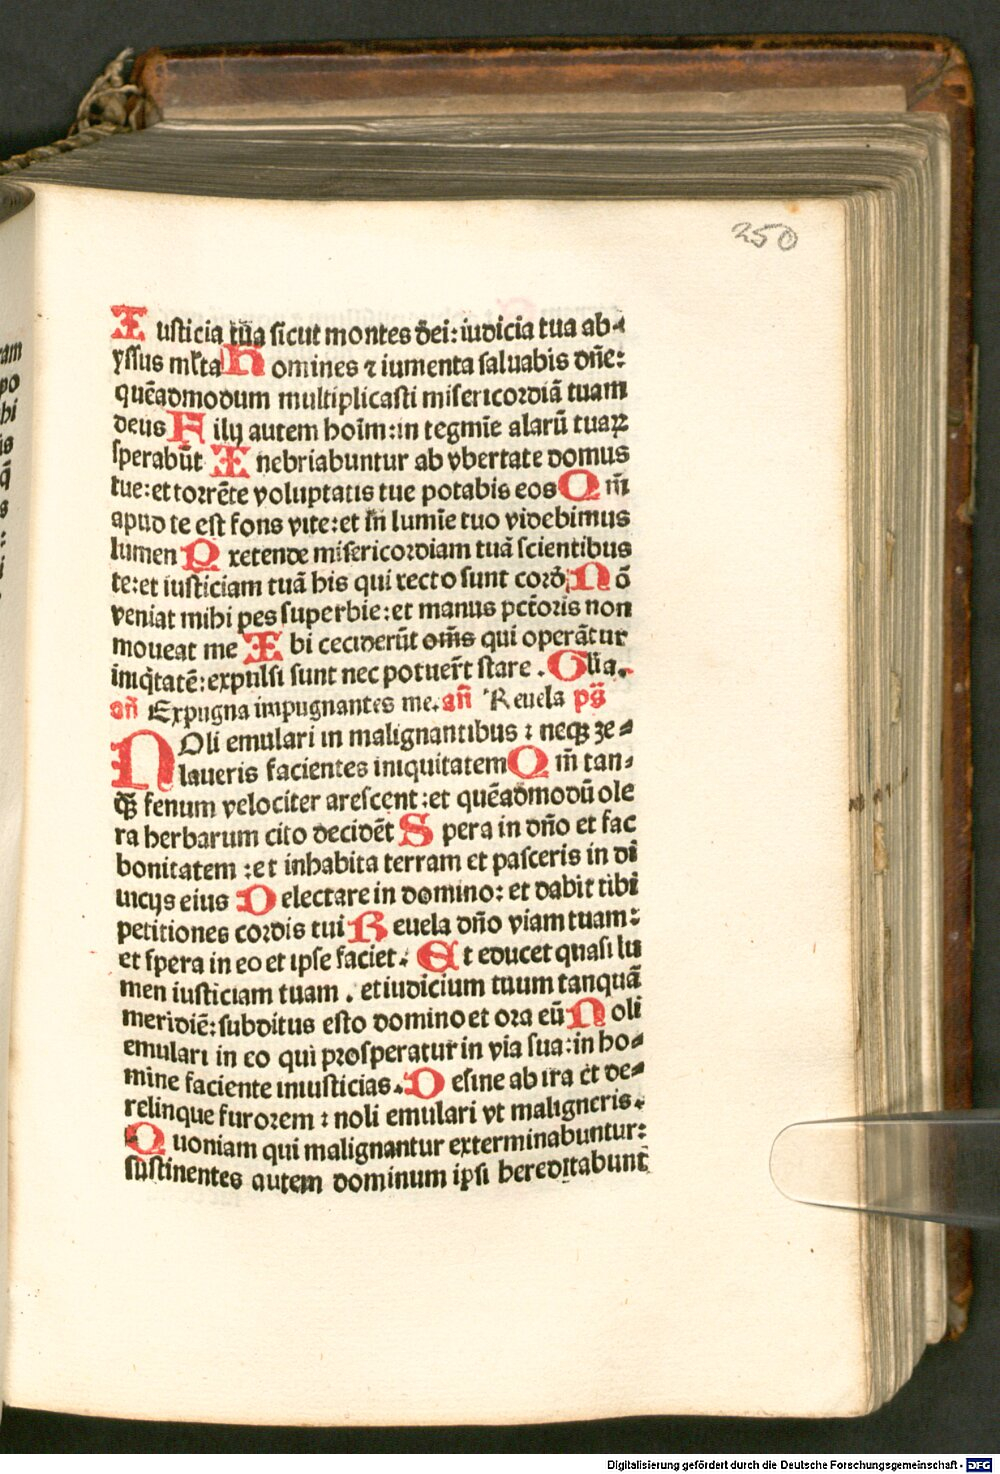 250
Iusticia tua sicut montes dei: iudicia tua ab-
yssus ml'ta Homines ⁊ iumenta saluabis dñe:
quẽadmodum multiplicasti misericordiã tuam
deus Filij autem hoim̃: in tegmĩe alarũ tuaꝝ
sperabũt Inebriabuntur ab vbertate domus
tue: et torrẽte voluptatis tue potabis eos Qm̃
apud te est fons vite: et in lumĩe tuo videbimus
lumen Pretende misericordiam tuã scientibus
te: et iusticiam tuã his qui recto sunt cord̃ Nõ
veniat mihi pes superbie: et manus pct̃oris non
moueat me Ibi ceciderũt om̃s qui operãtur
iniq̃tatẽ: expulsi sunt nec potuer̃t stare . Gl̃ia.
añ Expugna impugnantes me. añ Reuela ps̃
NOli emulari in malignantibus ⁊ neqꝫ ze-
laueris facientes iniquitatem Qm̃ tan-
qꝫ fenum velociter arescent: et quẽadmodũ ole
ra herbarum cito decidẽt Spera in dño et fac
bonitatem : et inhabita terram et pasceris in di
uicijs eius Delectare in domino: et dabit tibi
petitiones cordis tui Reuela dño viam tuam:
et spera in eo et ipse faciet. Et educet quasi lu
men iusticiam tuam . et iudicium tuum tanquã
meridiẽ: subditus esto domino et ora eũ Noli
emulari in eo qui prosperatur in via sua: in ho-
mine faciente iniusticias. Desine ab ira et de-
relinque furorem ⁊ noli emulari vt maligneris.
Quoniam qui malignantur exterminabuntur:
sustinentes autem dominum ipsi hereditabunt
Digitalisierung gefördert durch die Deutsche Forschungsgemeinschaft - DFG